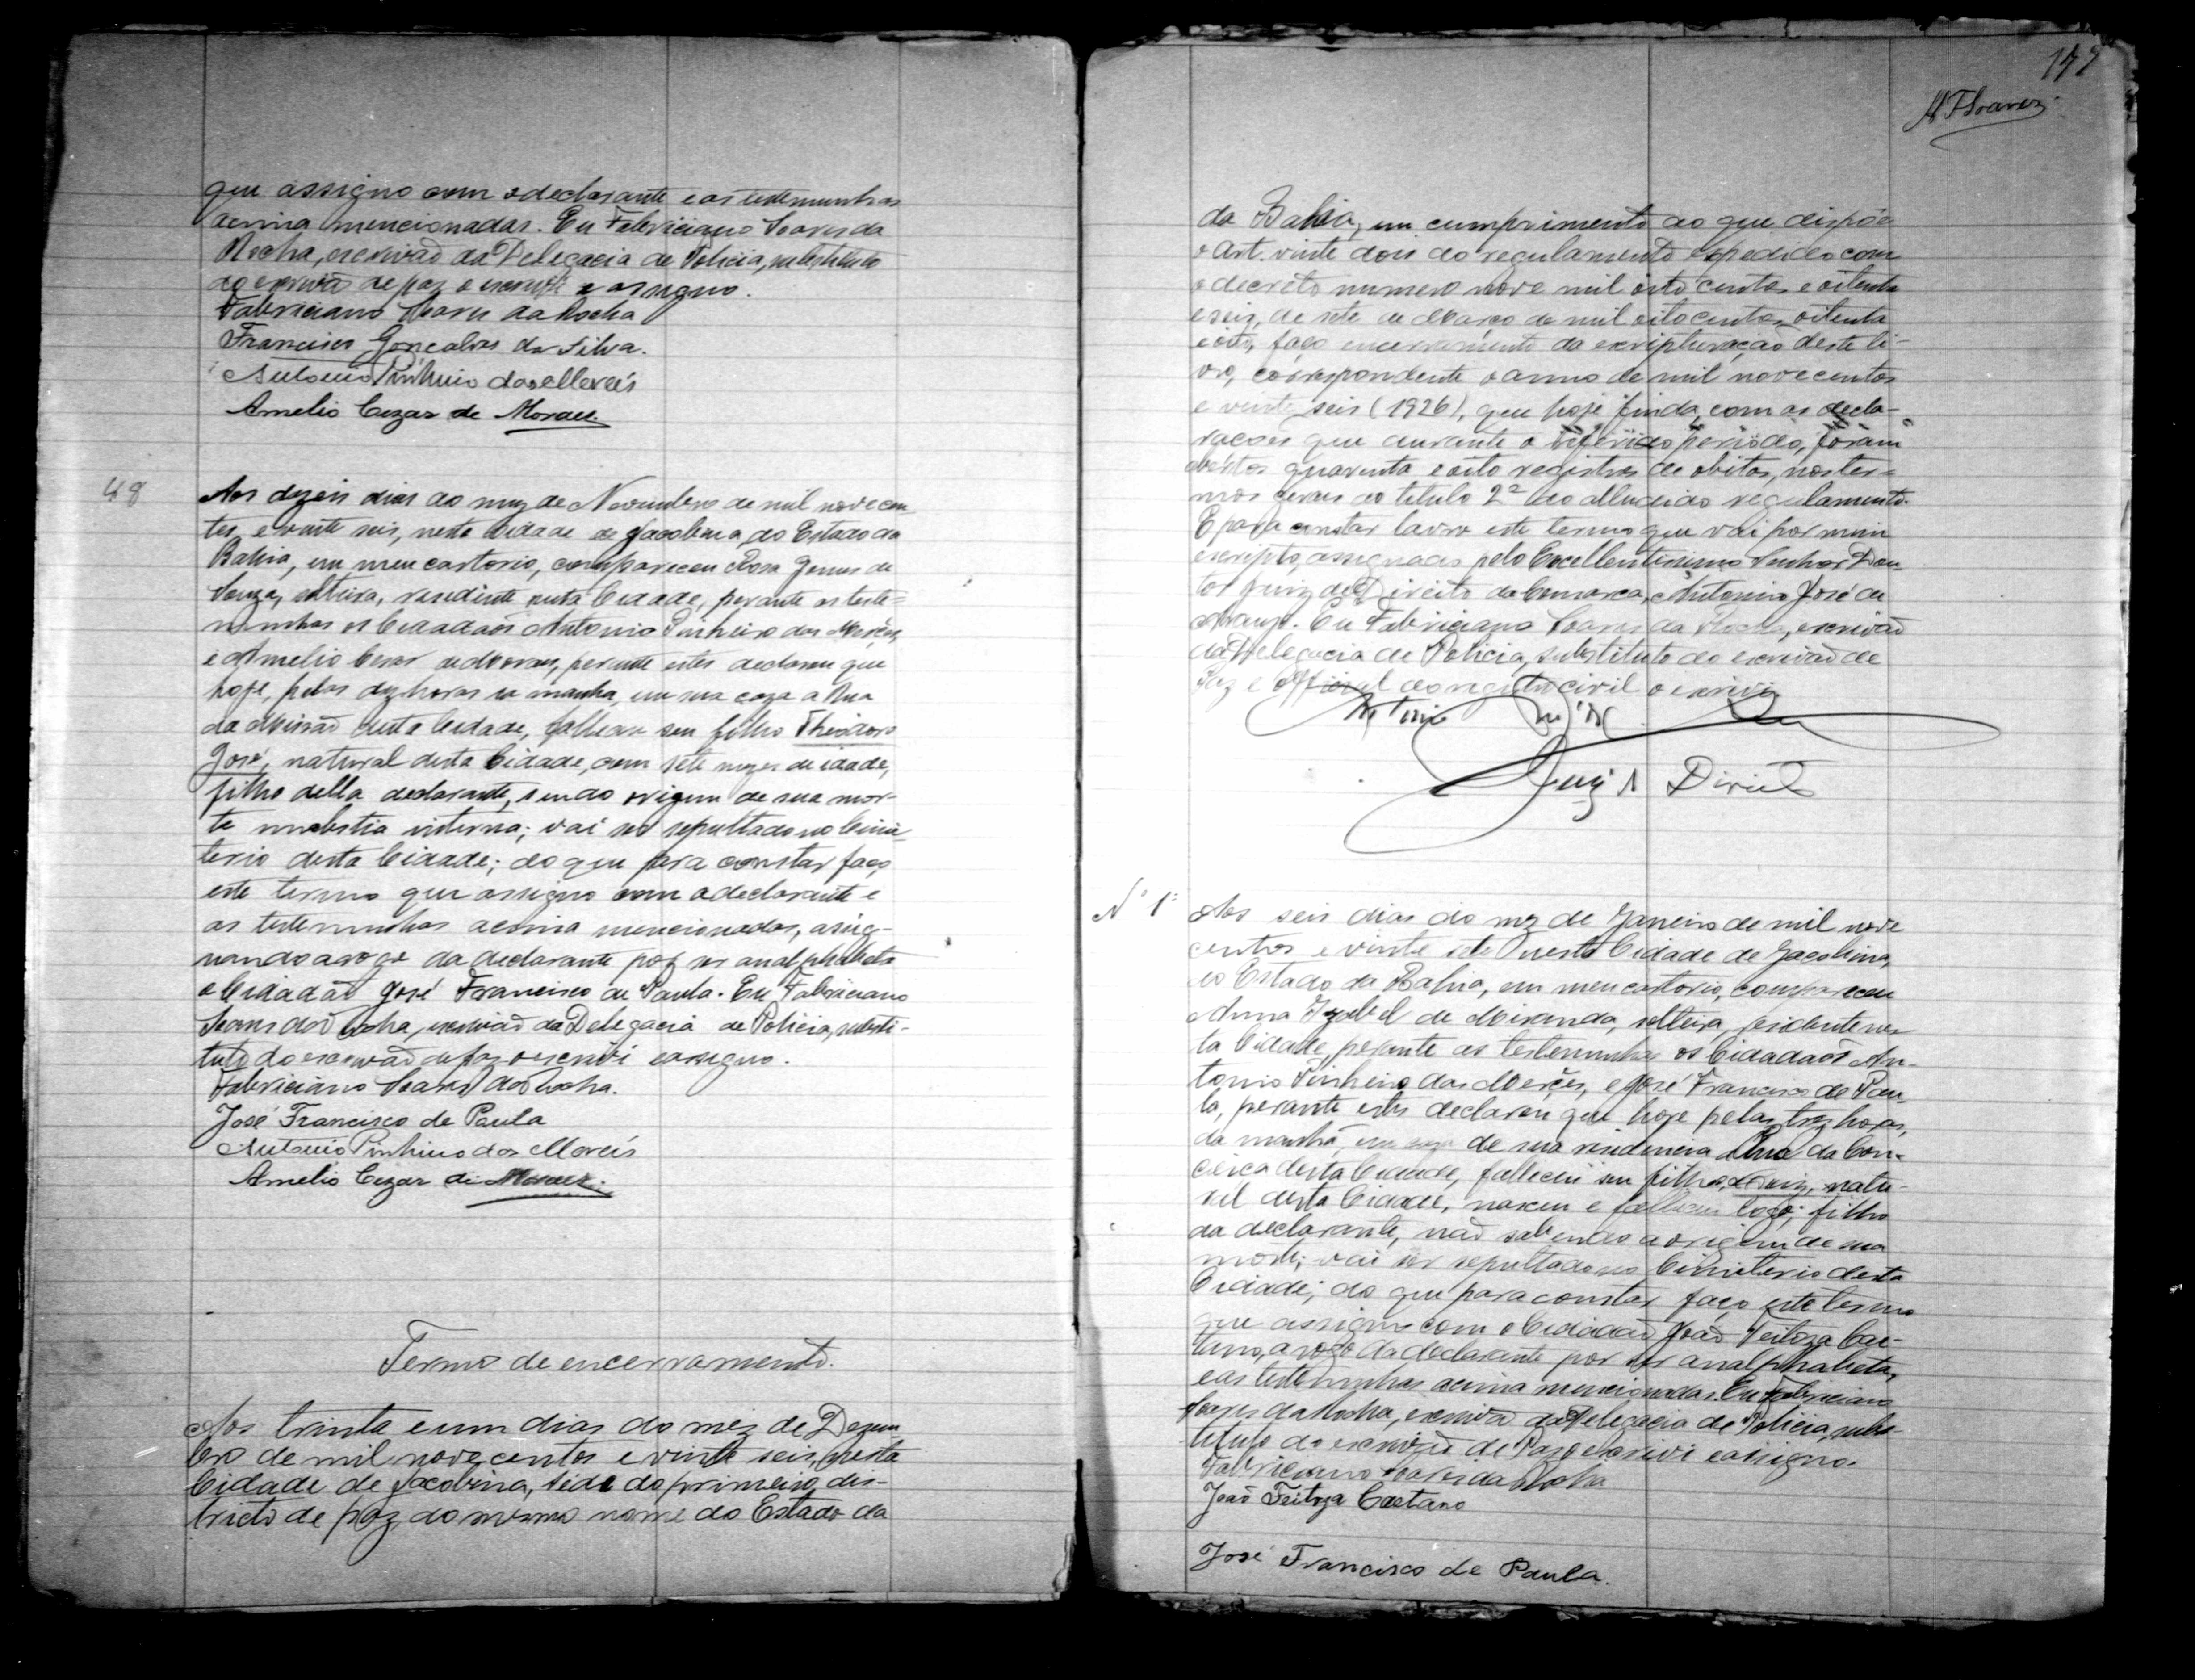 que assigno com o declarante e as testemunhas
acima mencionadas. Eu Fabriciano Soares da
Rocha, escrivaõ da Delegacia de Policia, substituto
do escrivaõ de paz o escrevi e assigno.
Fabriciano Soares da Rocha
Francisco Gonçalves da Silva.
Antonio Pinheiro das Mercês
Amelio Cezar de Moraes
48
Aos dezeis dias do mez de Novembro de mil nove cen
tos e vinte seis, nesta Cidade de Jacobina, do Estado da
Bahia, em meu cartorio, compareceu Rosa Gomes de
Souza, solteira, residente nesta Cidade, perante as teste=
munhas os Cidadaõs Antonio Pinheiro das Mercês,
e Amelio Cesar de Moraes, perante estes declarou que
hoje, pelas dez horas da manha, em sua caza a Rua
da Missaõ desta Cidade, falleceu seu filho Theodoro
José, natural desta Cidade, com sete mezes de idade,
filho della declarante, sendo origem de sua mor-
te molestia interna; vai ser sepultado no Cimi
terio desta Cidade; do que para constar faço
este termo que assigno com a declarante e
as testemunhas acima mencionadas, asig-
nando a rogo da declarante por ser analphabeta
o Cidadaõ José Francisco de Paula. Eu Fabriciano
Soares da Rocha, escrivaõ da Delegacia de Policia, substi-
tuto do escrivaõ de paz o escrevi e assigno.
Fabriciano Soares da Rocha.
José Francisco de Paula
Antonio Pinheiro das Mercês
Amelio Cezar de Moraes.
Termo de encerramento.
Aos trinta e um dias do mêz de Dezem
bro de mil nove centos e vinte seis, nesta
Cidade de Jacobina, séde do primeiro dis-
tricto de paz do mesmo nome do Estado da
da Bahia, em cumprimento ao que dispõe
o Art. vinte dois do regulamento expedido com
o decreto numero nove mil oito centos e oitenta
e seis, de sete de Março de mil oito centos oitenta
e oito, faço encerramento da escripturação deste li-
vro, correspondente o anno de mil nove centos
e vinte seis (1926), que hoje finda, com as decla-
rações que durante o referido periodo, foram
abertos quarenta e oito registros de obitos, nos ter=
mos gerais do titulo 2º do alludido regulamento.
E para constar lavro este termo que vai por mim
escripto, assignado pelo Excellentissimo Senhor Dou
tor Juiz de Direito da Comarca, Antonio José de
Araujo. Eu Fabriciano Soares da Rocha, escrivaõ
da Delegacia de Policia, substituto do escrivaõ de
Paz e Official do registro civil o escrivi.
Juiz d Direito
Nº 1º
Aos seis dias do mez de Janeiro de mil nove
centos e vinte sete nesta Cidade de Jacobina,
do Estado da Bahia, em meu cartorio, compareceu
Anna Izabel de Miranda, solteira, residente nes
ta Cidade, perante as testemunhas os Cidadaõs An-
tonio Pinheiro das Mercês, e José Francisco de Pau-
la, perante estes declarou que hoje pelas trez horas,
da manhã, em caza de sua residencia Rua da Con-
ceica desta Cidade, falleceu seu filho, natu-
ral desta Cidade, nasceu e falleceu logo; filho
da declarante, naõ sabendo a origem de sua
morte; vai ser sepultado no Cimiterio desta
Cidade; do que para constar faço este termo
que assigno com o Cidadaõ Joaõ Feitoza Cae-
tano, a rogo da declarante por ser analphabeta,
e as testemunhas acima mencionadas. Eu Fabriciano
Soares da Rocha, escrivaõ da Delegacia de Policia, subs-
tituto do escrivaõ de Paz o escrivi e assigno.
Fabriciano Soares da Rocha
Joaõ Feitoza Caetano
José Francisco de Paula.